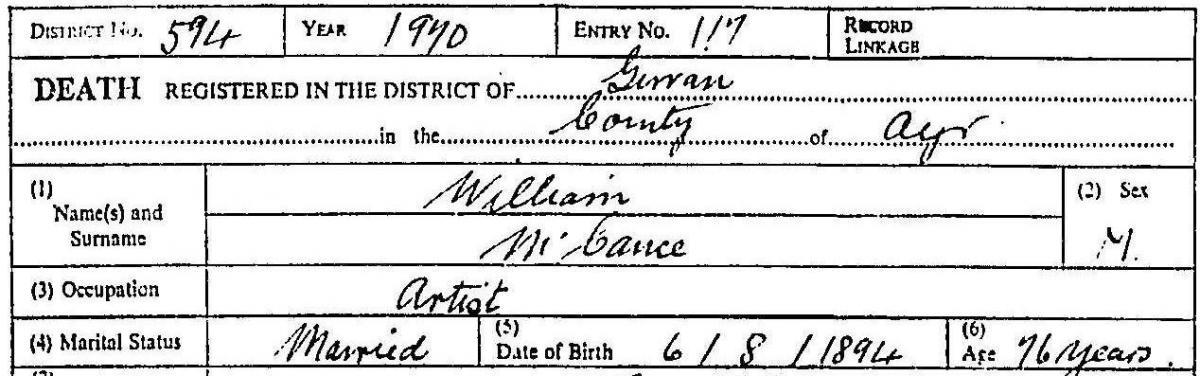 DISTRICT No. 594 YEAR 1970 ENTRY No. 117 RECORD LINKAGE
DEATH REGISTERED IN THE DISTRICT OF Girvan
in the County of Ayr
(1) Name(s) and Surname William (2) Sex
McCance M.
(3) Occupation Artist
(4) Marital Status Married (5) Date of Birth 6/8/1894 (6) Age 76 years.